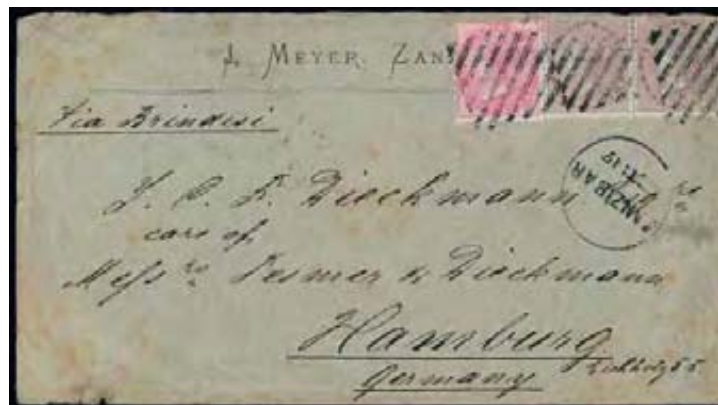 J. MEYER. ZAN
Via Brindisi
ZANZIBAR
J. C. F. Dieckmann
care of
Mess rs Tesmer & Dieckmann
Hamburg
Germany